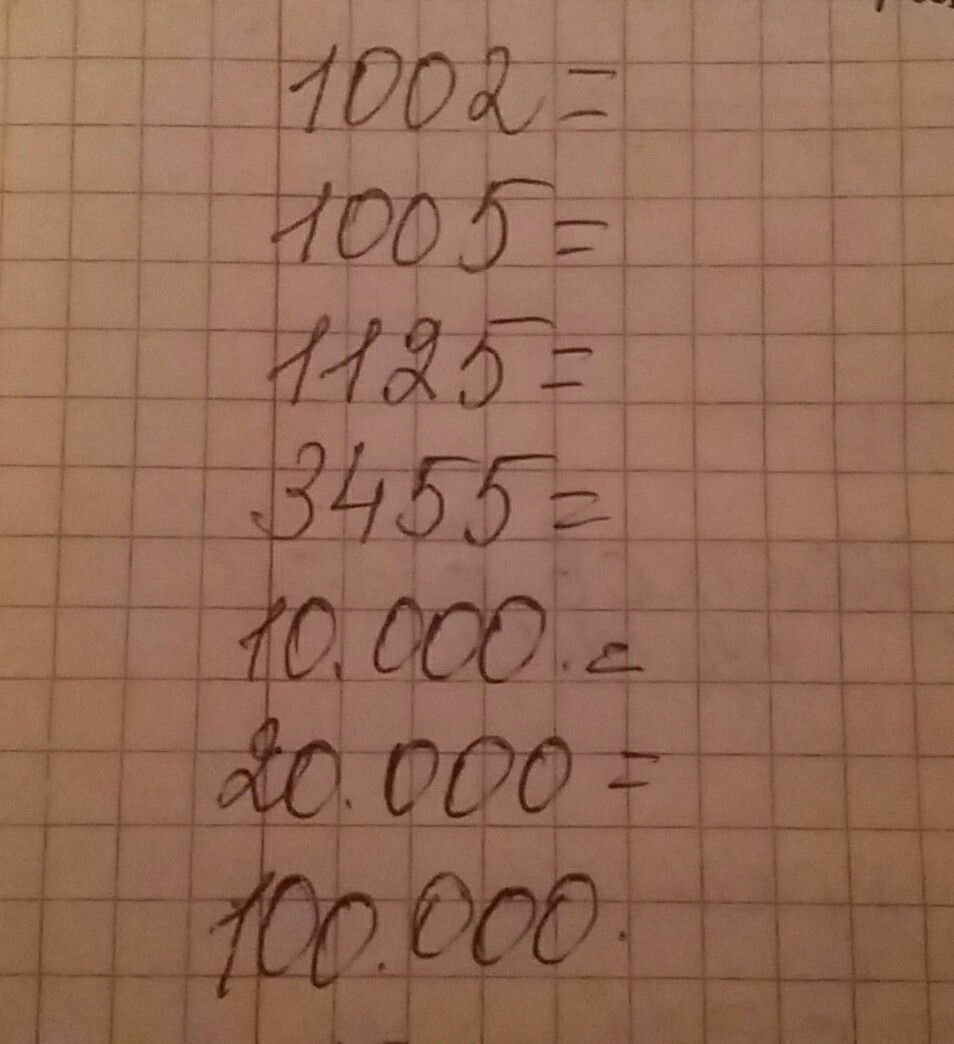 1002=
1005=
1125=
3455=
10.000.=
20.000=
100.000.